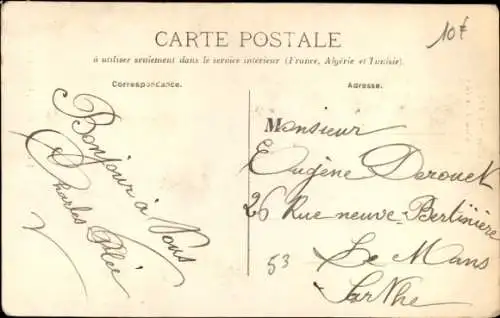 CARTE POSTALE
à utiliser seulement dans le service intérieur (France, Algérie et Tunisie).
Correspondance.
Adresse.
10€
Bonjour à Vous
Charles
Monsieur
Eugène Derouet
26 Rue neuve-Bertinière
Le Mans
Sarthe
53